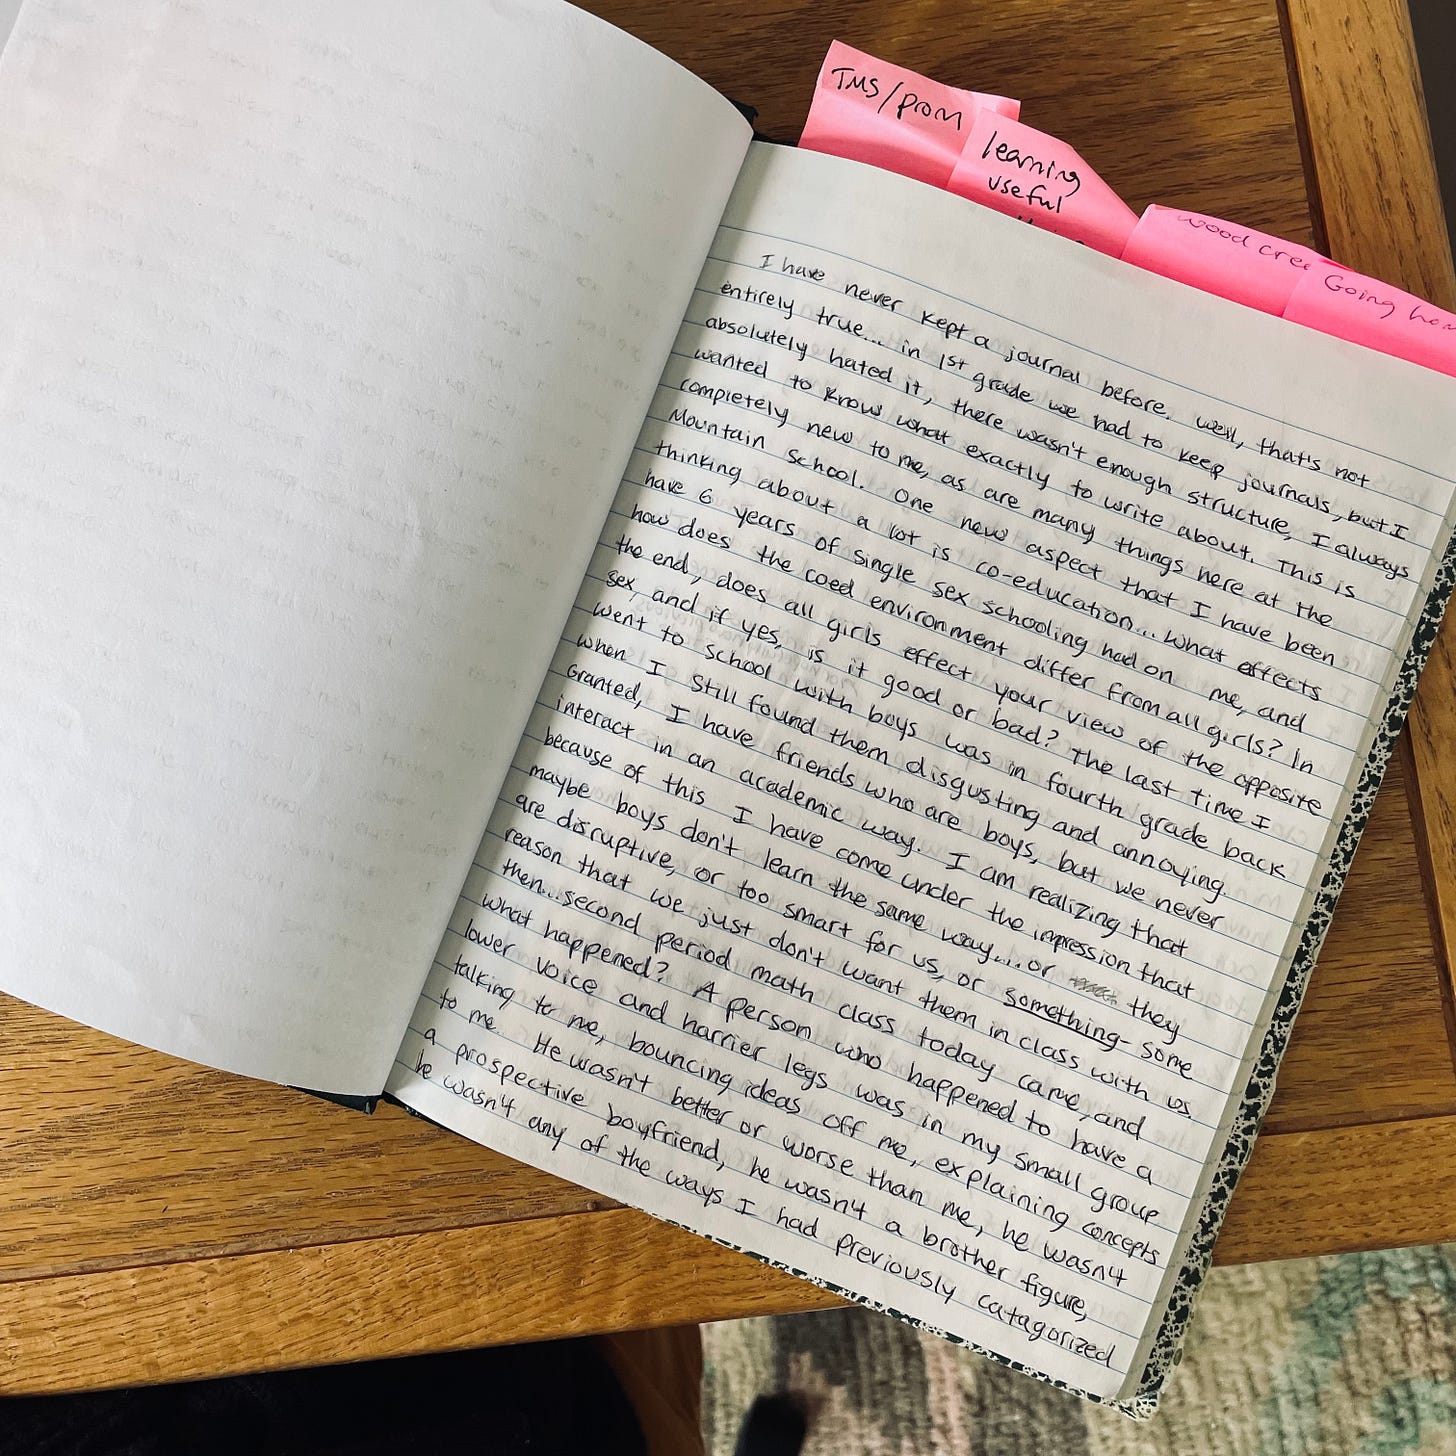 TMS/prom
learning
useful
wood
Going
I have never kept a journal before. well, that's not
entirely true... in 1st grade we had to keep journals, but I
absolutely hated it, there wasn't enough structure, I always
wanted to know what exactly to write about. This is
completely new to me, as are many things here at the
Mountain School. One new aspect that I have been
thinking about a lot is co-education... what effects
have 6 years of single sex schooling had on me, and
how does the coed environment differ from all girls? In
the end, does all girls effect your view of the opposite
sex, and if yes, is it good or bad? The last time I
went to school with boys was in fourth grade back
when I still found them disgusting and annoying.
Granted, I have friends who are boys, but we never
interact in an academic way. I am realizing that
because of this I have come under the impression that
maybe boys don't learn the same way... or they
are disruptive, or too smart for us, or something- some
reason that we just don't want them in class with us.
then... second period math class today came, and
what happened? A person who happened to have a
lower voice and harrier legs was in my small group
talking to me, bouncing ideas off me, explaining concepts
to me. He wasn't better or worse than me, he wasn't
a prospective boyfriend, he wasn't a brother figure,
he wasn't any of the ways I had previously catagorized